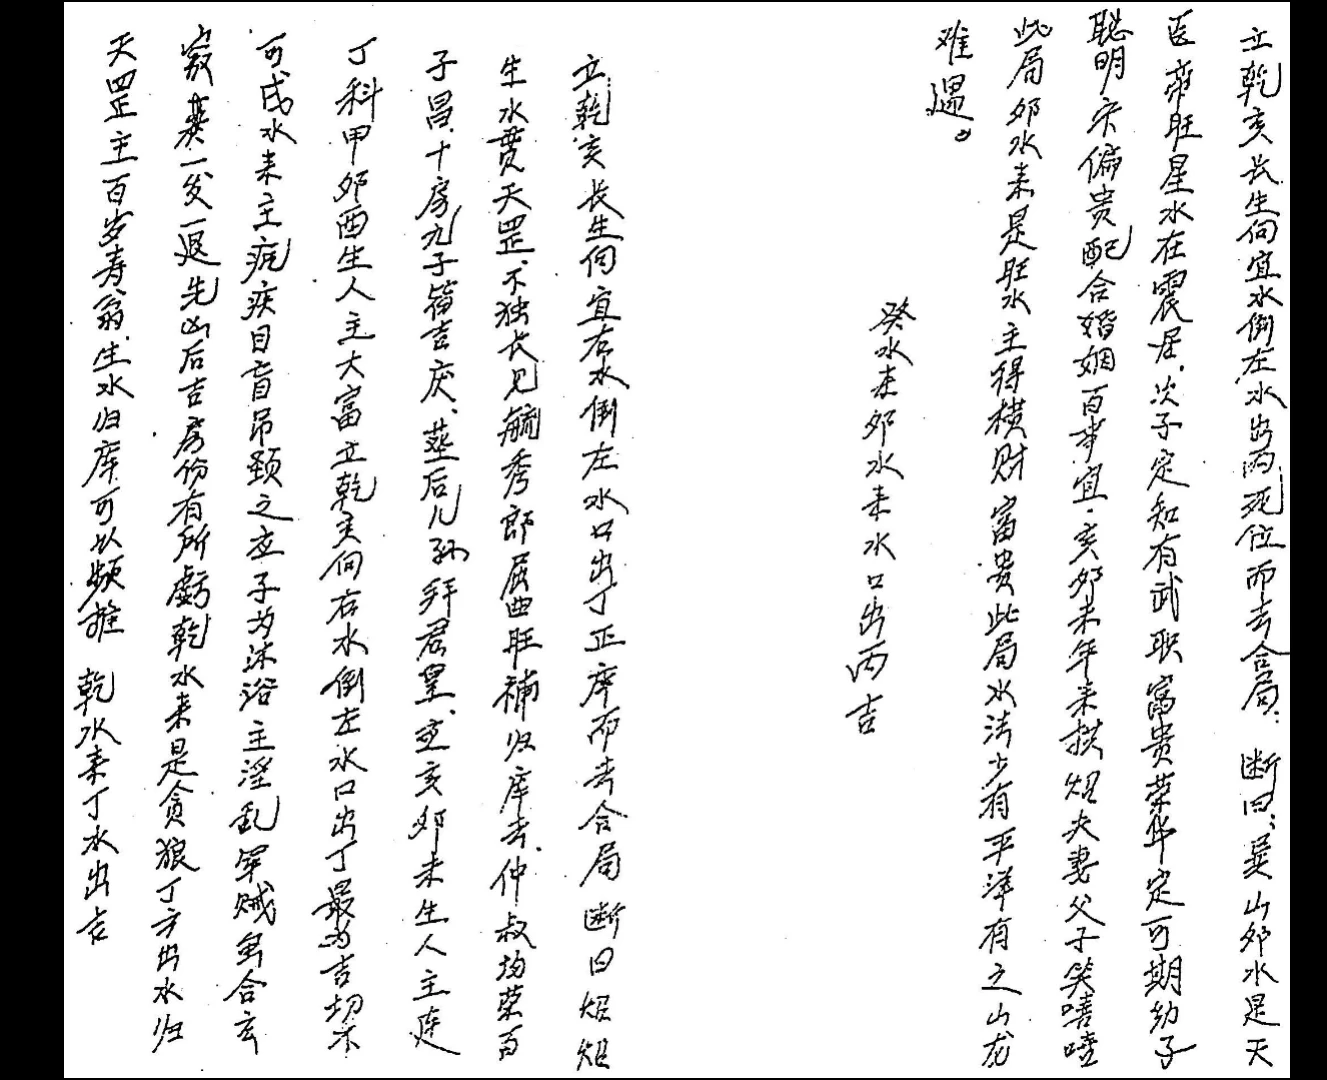 立乾亥长生向宜水倒左水出丙死位而去合局：断曰：巽山卯水是天
医帝旺星水在震居.次子定知有武职富贵荣华定可期幼子
聪明宋偏贵配合婚姻百事宜.亥卯未年来拱夫妻父子笑嘻嘻
此局卯水来是旺水主得横财富贵此局水法少有平洋有之山龙
难遇。
癸水来卯水来水口出丙吉
立乾亥长生向宜右水倒左水口出丁正库而去合局断曰
生水贯天罡、不独长儿毓秀郎屈曲旺補归库去.仲叔均荣百
子昌.十房九子皆吉庆、葬后儿孙拜君皇.亥卯未生人主连
丁科甲卯酉生人主大富立乾亥向右水倒左水口出丁最为吉切不
可戌水来主疯疾目盲吊颈之立子为沐浴主淫乱军贼皆合玄
窍葬一发一退先凶后吉房份有所虧乾水来是贪狼丁方出水归
天罡主百岁寿翁.生水归库可以频推 乾水来丁水出吉